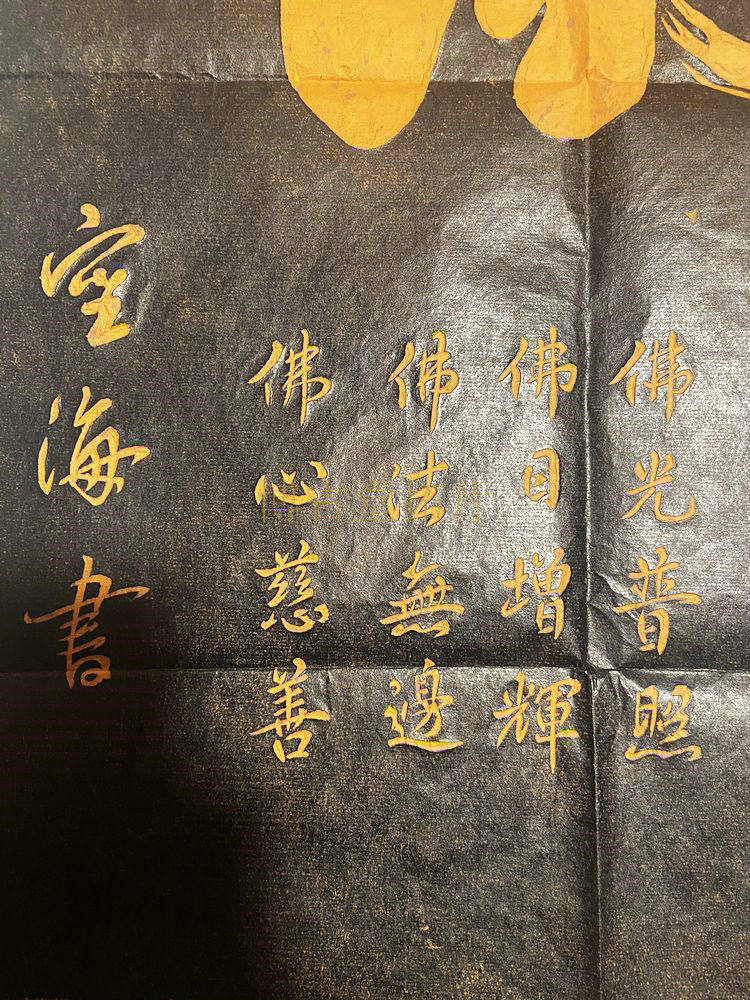 佛光普照
佛日增輝
佛法無邊
佛心慈善
空海書